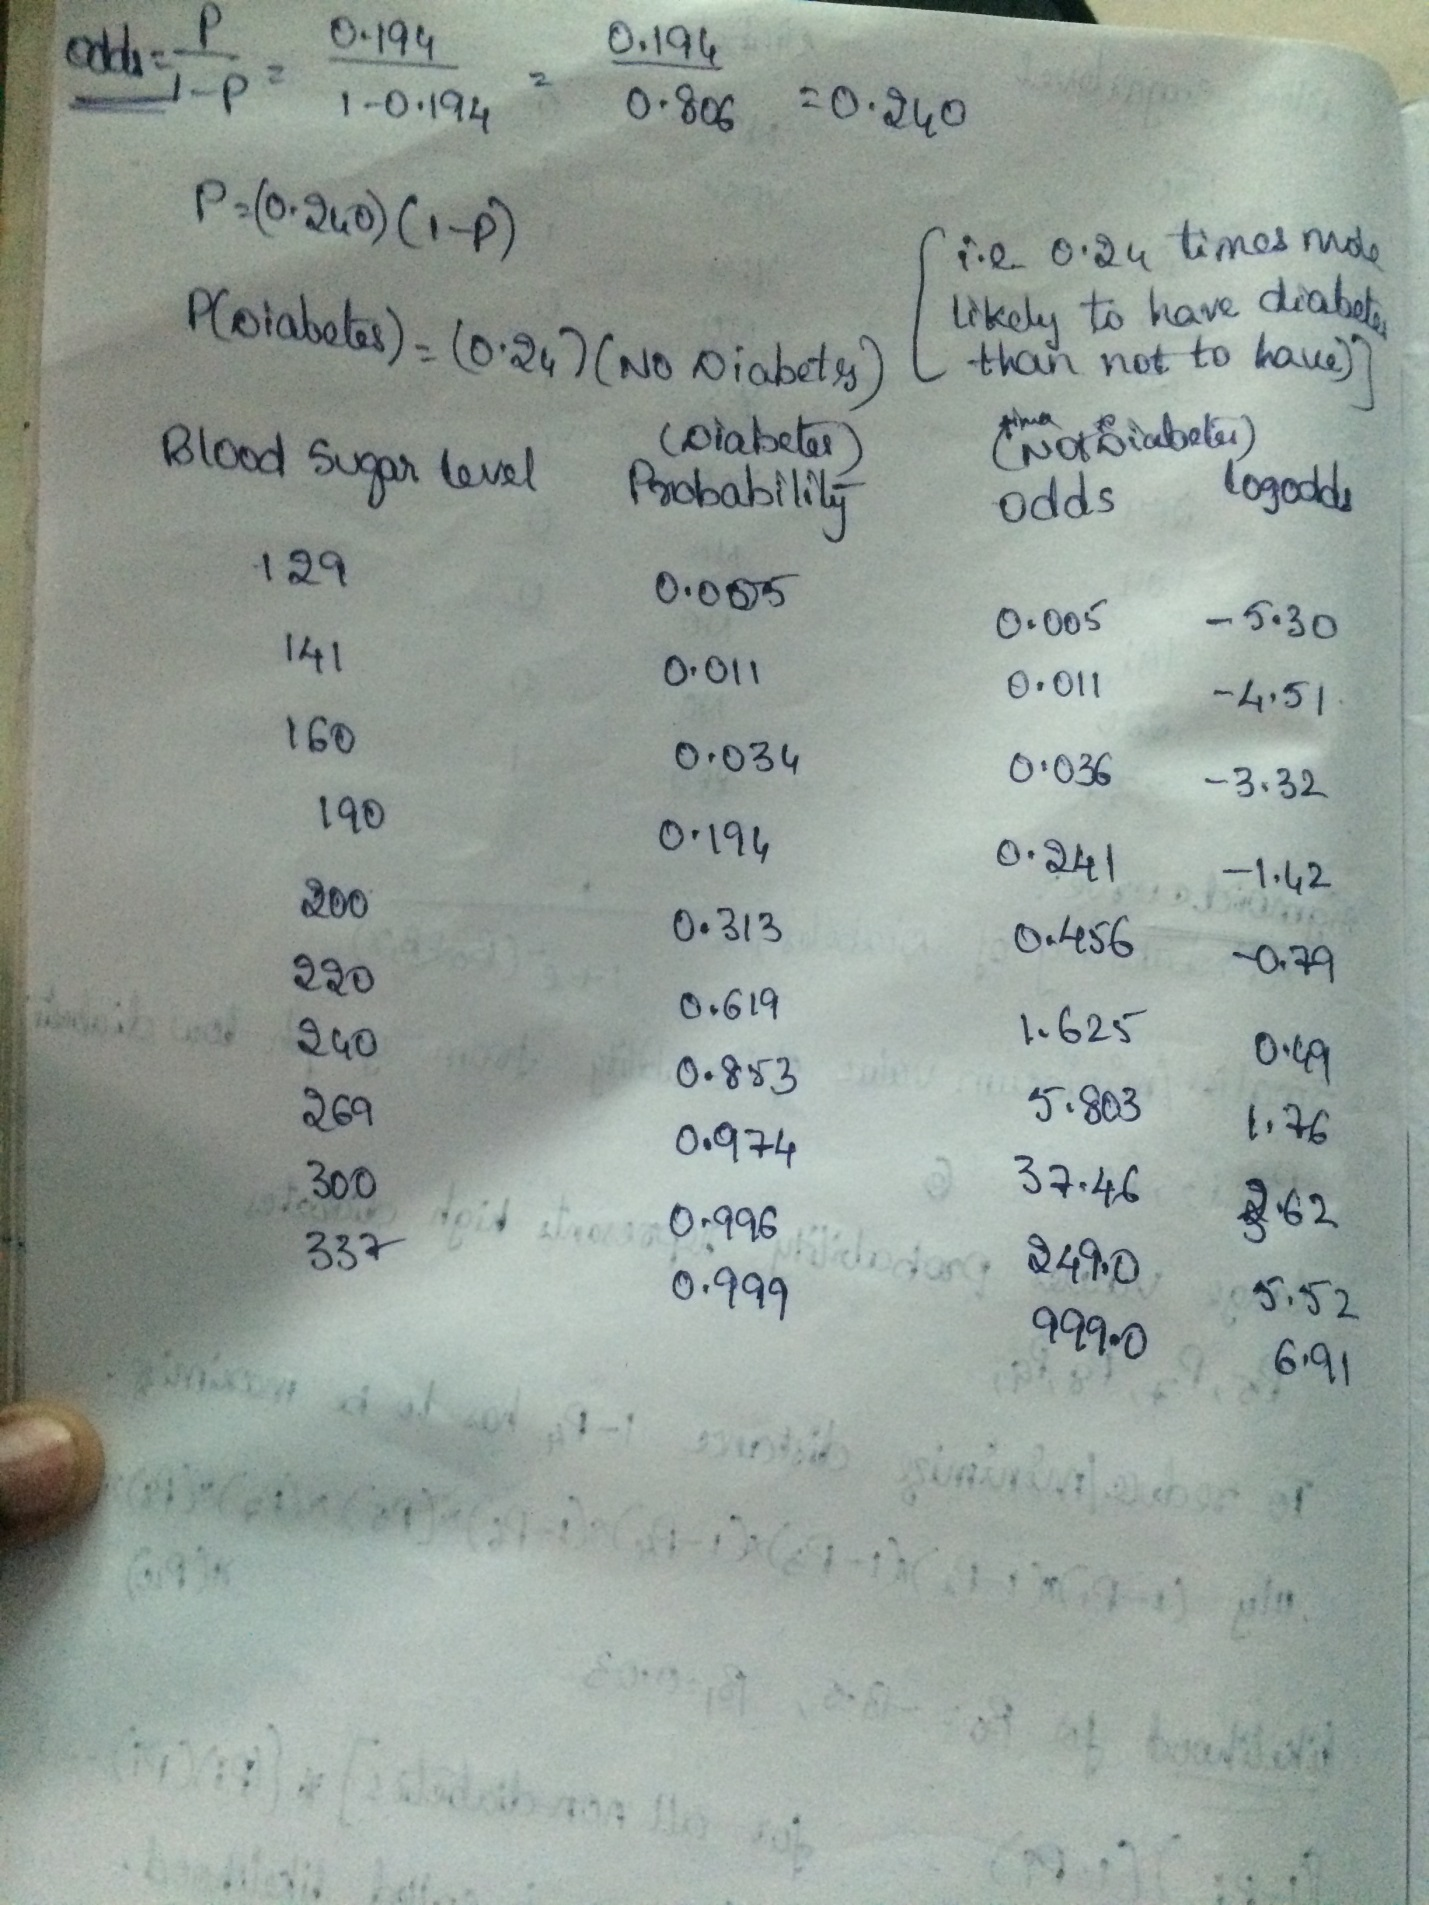 odds = P / 1-P = 0.194 / 1-0.194 = 0.194 / 0.806 = 0.240
P=(0.240)(1-P)
[i.e 0.24 times more
likely to have diabetes
than not to have)]
P(Diabetes) = (0.24)(No Diabetes)
Blood Sugar level (Diabetes) Probability (Not Diabetes) odds logodds
129 0.005 0.005 -5.30
141 0.011 0.011 -4.51
160 0.034 0.036 -3.32
190 0.194 0.241 -1.42
200 0.313 0.456 -0.79
220 0.619 1.625 0.49
240 0.853 5.803 1.76
269 0.974 37.46 3.62
300 0.996 249.0 5.52
337 0.999 999.0 6.91